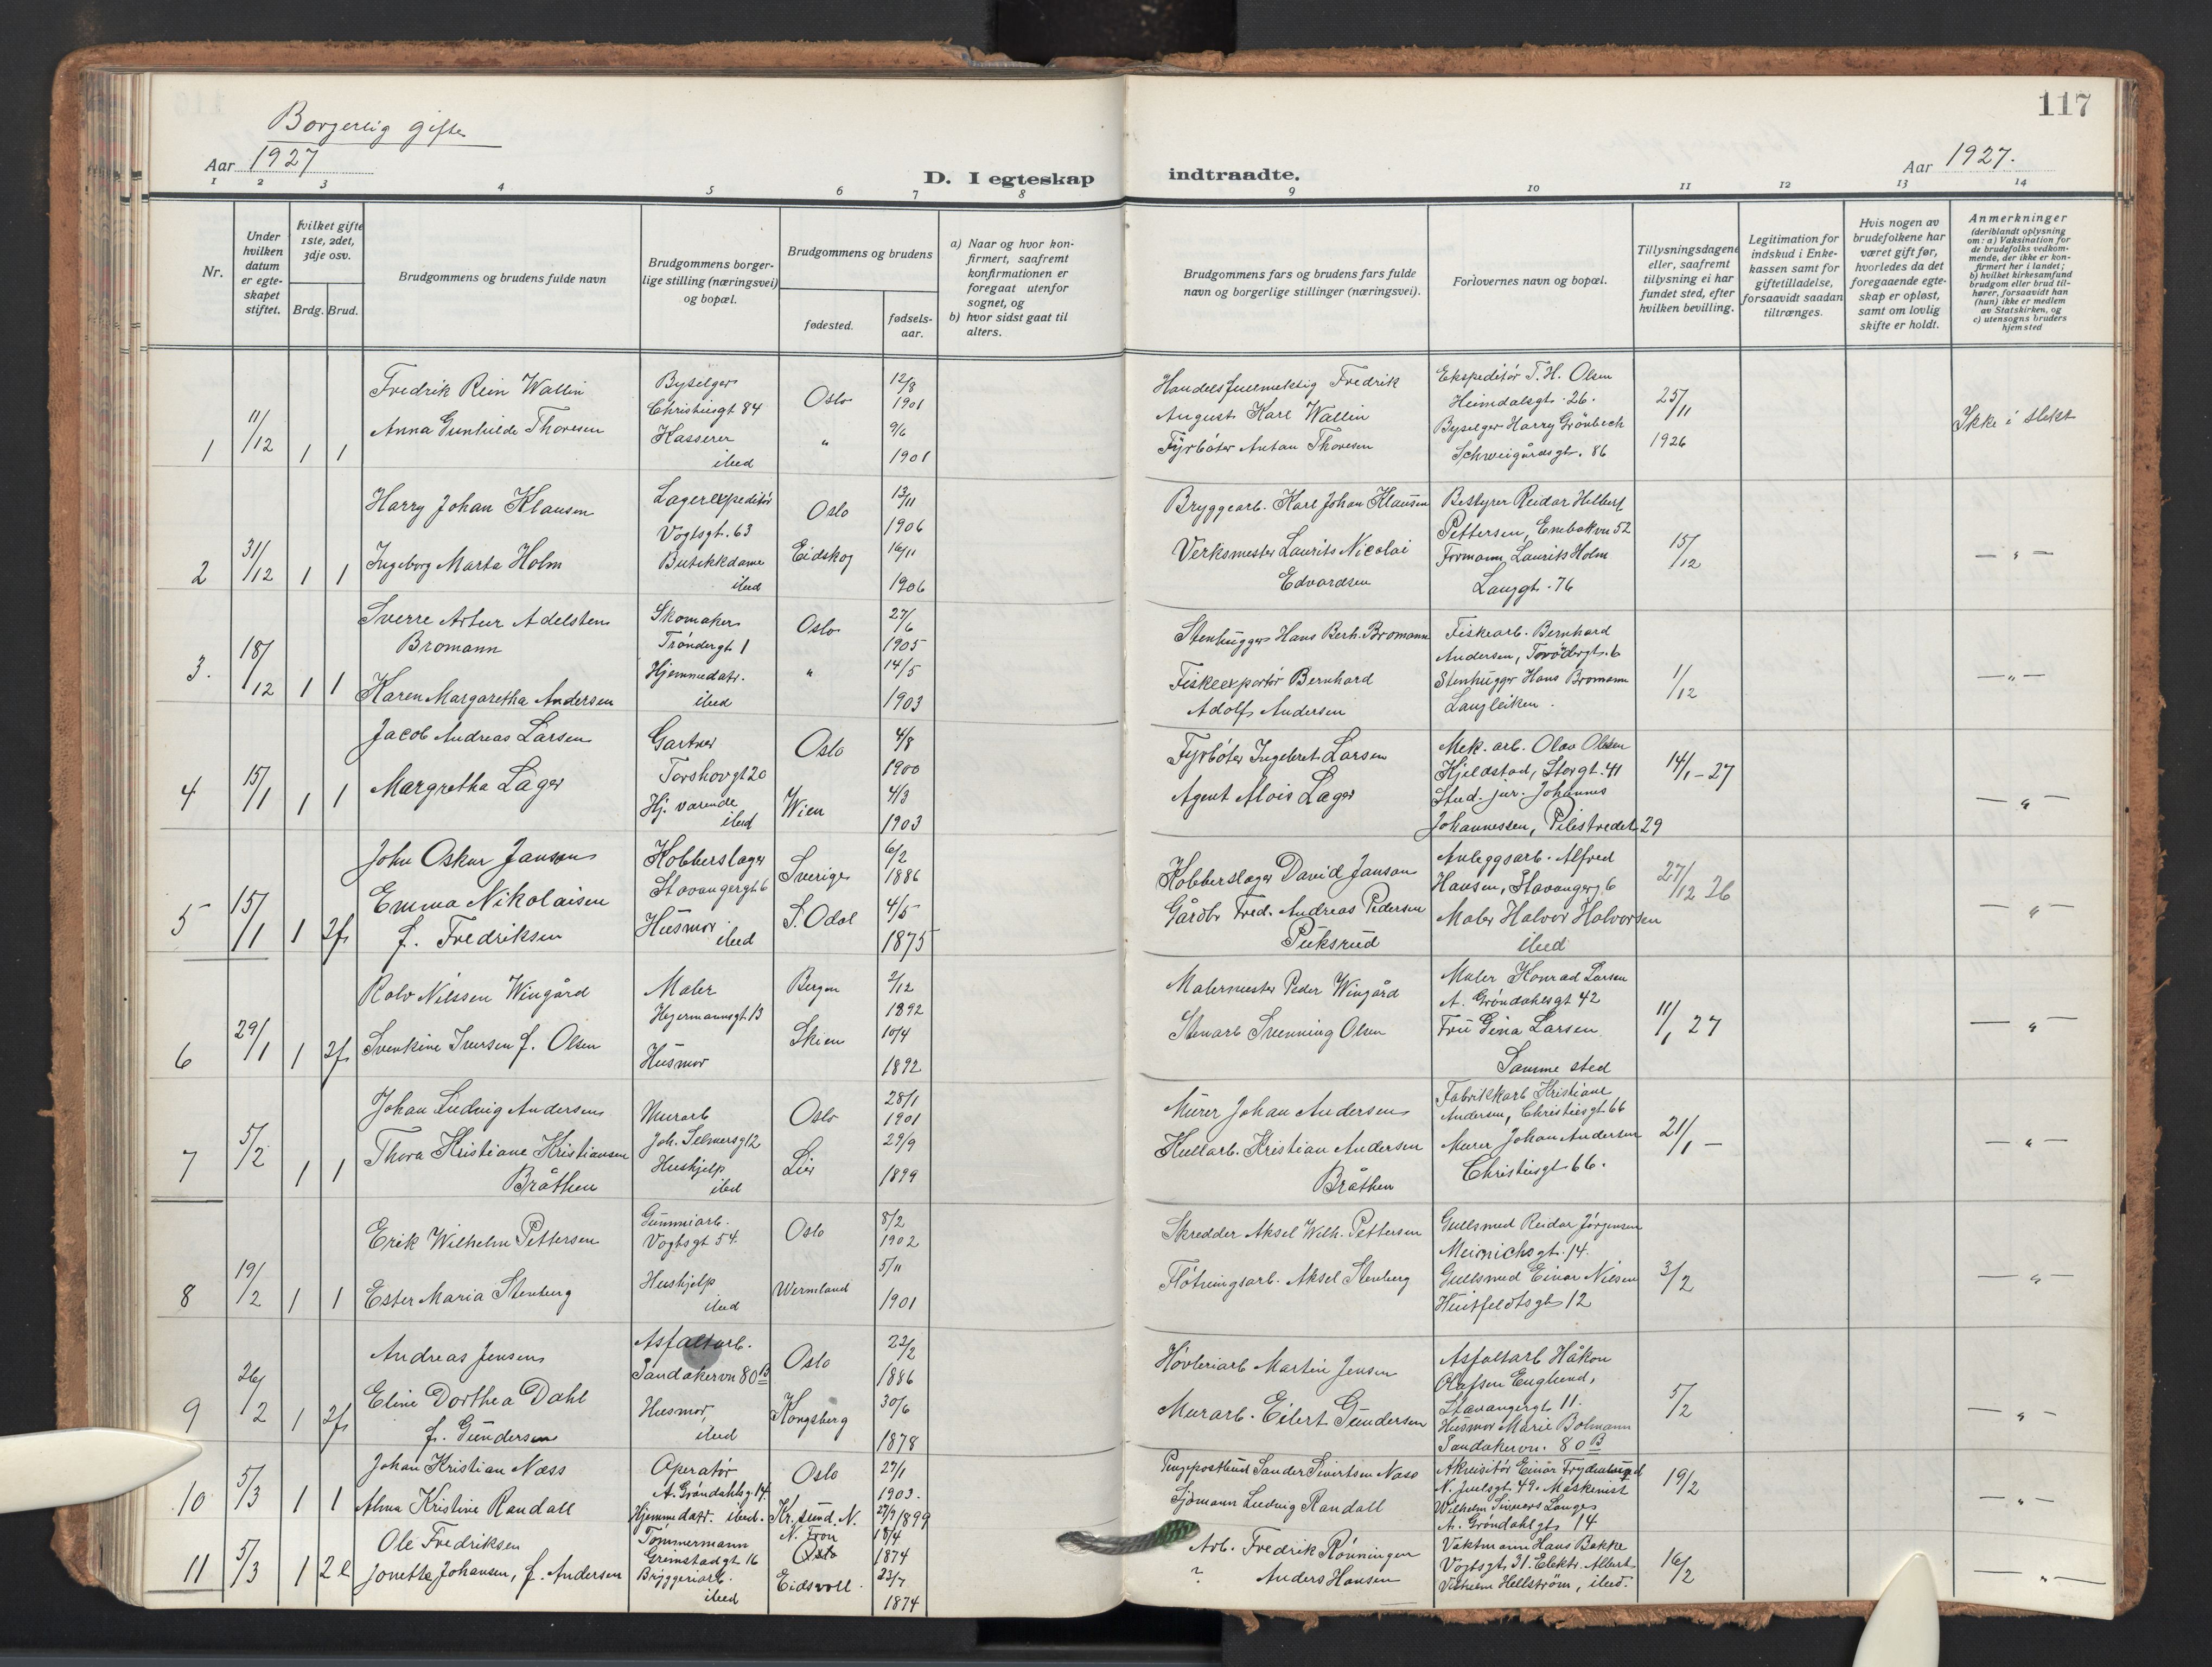 117
Borgerlig gifte
Aar 1927
D. I egteskap indtraadte.
Aar 1927.
1 2 3 4 5 6 7 8 9 10 11 12 13 14
Nr.
Under hvilken datum er egteskapet stiftet.
hvilket gifte 1ste, 2det, 3dje osv.
Brdg. Brud.
Brudgommens og brudens fulde navn
Brudgommens borgerlige stilling (næringsvei) og bopæl.
Brudgommens og brudens
fødested.
fødselsaar.
a) Naar og hvor konfirmert, saafremt konfirmationen er foregaat utenfor sognet, og
b) hvor sidst gaat til alters.
Brudgommens fars og brudens fars fulde navn og borgerlige stillinger (næringsvei).
Forlovernes navn og bopæl.
Tillysningsdagene eller, saafremt tillysning ei har fundet sted, efter hvilken bevilling.
Legitimation for indskud i Enkekassen samt for giftetilladelse, forsaavidt saadan tiltrænges.
Hvis nogen av brudefolkene har været gift før, hvorledes da det foregaaende egteskap er opløst, samt om lovlig skifte er holdt.
Anmerkninger
(deriblandt oplysning om: a) Vaksination for de brudefolks vedkommende, der ikke er konfirmert her i landet; b) hvilket kirkesamfund brudgom eller brud tilhører, forsaavidt han (hun) ikke er medlem av Statskirken, og c) utensogns bruders hjemsted
1 11/12 1 1
Fredrik Rein Wallin
Anna Gunhilde Thoresen
Byselger
Christiesgt 84
Kasserer
ibid
Oslo
"
12/8
1901
9/6
1901
Handelsfuldmektig Fredrik
August Karl Wallin
Fyrbøter Anton Thoresen
Ekspeditør T. H. Olsen
Heimdalsgt. 26.
Byselger Harry Grönbech
Schweigårdsgt. 86
25/11
1926
Ikke i slekt
2 31/12 1 1
Harry Johan Klausen
Ingeborg Marta Holm
Lagerexpeditør
Vogtsgt. 63
Butikkdame
ibid
Oslo
Eidskog
13/11
1906
16/11
1906
Bryggearb. Karl Johan Klausen
Verksmester Laurits Nicolai
Edvardsen
Bestyrer Reidar Hilbert
Pettersen, Enebakkvn 52
Formann Laurits Holm
Langgt. 76
15/12
— " —
3. 18/12 1 1
Sverre Artur Adelsten
Bromann
Karen Margaretha Andersen
Skomaker
Trøndergt 1
Hjemmedatr.
ibid
Oslo
"
27/6
1905
14/5
1903
Stenhugger Hans Berh. Bromann
Fiskeexportør Bernhard
Adolf Andersen
Fiskearb. Bernhard
Andersen, Trøndergt. 6
Stenhugger Hans Bromann
Langleiken.
11/12
— " —
4 15/1 1 1
Jacob Andreas Larsen
Margretha Lager
Gartner
Torshovgt 20
Hj. værende
ibid
Oslo
Wien
4/8
1900
4/3
1903
Fyrbøter Ingebret Larsen
Agent Alois Lager
Mek. arb. Olav Olsen
Kjeldstad, Storgt. 41
Stud. jur. Johannes
Johannessen, Pilestredet 29
14/1 - 27
— " —
5 15/1 1 2f
John Oskar Janson
Emma Nikolaisen
f. Fredriksen
Kobberslager
Stavangergt 6
Husmor
ibid
Sverige
S. Odal
6/2
1886
4/5
1875
Kobberslager David Janson
Gårdbr Fred. Andreas Pedersen
Puksrud
Anleggsarb. Alfred
Hansen, Stavangerg. 6
Maler Halvor Halvorsen
ibid
27/12 26
— " —
6 29/1 1 2f
Rolv Nilssen Wingård
Svenkine Iversen f. Olsen
Maler
Hegermannsgt 13
Husmor
Bergen
Skien
2/12
1892
10/4
1892
Malermester Peder Wingård
Stenarb Svenning Olsen
Maler Konrad Larsen
A. Grøndahlsgt 42
Fru Gina Larsen
Samme sted
11/1 27
— " —
7 5/2 1 1
Johan Ludvig Andersen
Thora Kristiane Kristiansen
Bråthen
Murarb
Joh. Selmersg 12
Hushjelp
ibid
Oslo
Lier
28/1
1901
29/9
1899
Murer Johan Andersen
Kullarb. Kristian Andersen
Bråthen
Fabrikkarb Kristiane
Andersen, Christiesgt 66
Murer Johan Andersen
Christiesgt 66.
21/1 —
— " —
8 19/2 1 1
Erik Wilhelm Pettersen
Ester Maria Stenberg
Gummiarb.
Vogtsgt 54.
Hushjelp
ibid
Oslo
Wermland
8/2
1902
5/11
1901
Skredder Aksel Wilh. Pettersen
Fløtningsarb. Aksel Stenberg
Gullsmed Reidar Jørgensen
Meinichsgt. 14.
Gullsmed Einar Nilsen
Huitfeldtsgt 12
3/2
— " —
9 26/2 1 2f
Andreas Jensen
Eline Dorthea Dahl
f. Gundersen
Asfaltarb.
Sandakervn 80 B
Husmor,
ibid
Oslo
Kongsberg
22/2
1886
30/6
1878
Høvleriarb Martin Jensen
Murarb. Eilert Gundersen
Asfaltarb Håkon
Olafsen Englund,
Stavangergt 11.
Husmor Marie Bolmann
Sandakervn. 80 B
5/2
— " —
10 5/3 1 1
Johan Kristian Næss
Alma Kristine Randall
Operatør
A. Grøndahlsg. 14.
Hjemmedatr. ibid.
Oslo
Kr. sund. N.
27/1
1903.
27/9 1899
Pengepostbud Sander Sivertsen Næss
Sjømann Ludvig Randall
Akvisitør Einar Frydenlund
N. Juelsgt. 49. Maskinist
Wilhelm Lange
A. Grøndahlgt 14
19/2
— " —
11 5/3 1 2 e
Ole Fredriksen
Jonette Johansen, f. Andersen
Tømmermann
Gremstadgt 16
Bryggeriarb.
ibid
N. Fron
Oslo
Eidsvoll.
18/4
1874
23/7
1874
Arb. Fredrik Rønningen
? Anders Hansen
Vaktmann Hans Bakke
Vogtsgt. 31. Elektr. Albert
Vilhelm Hellstrøm, ibid.
16/2
— " —